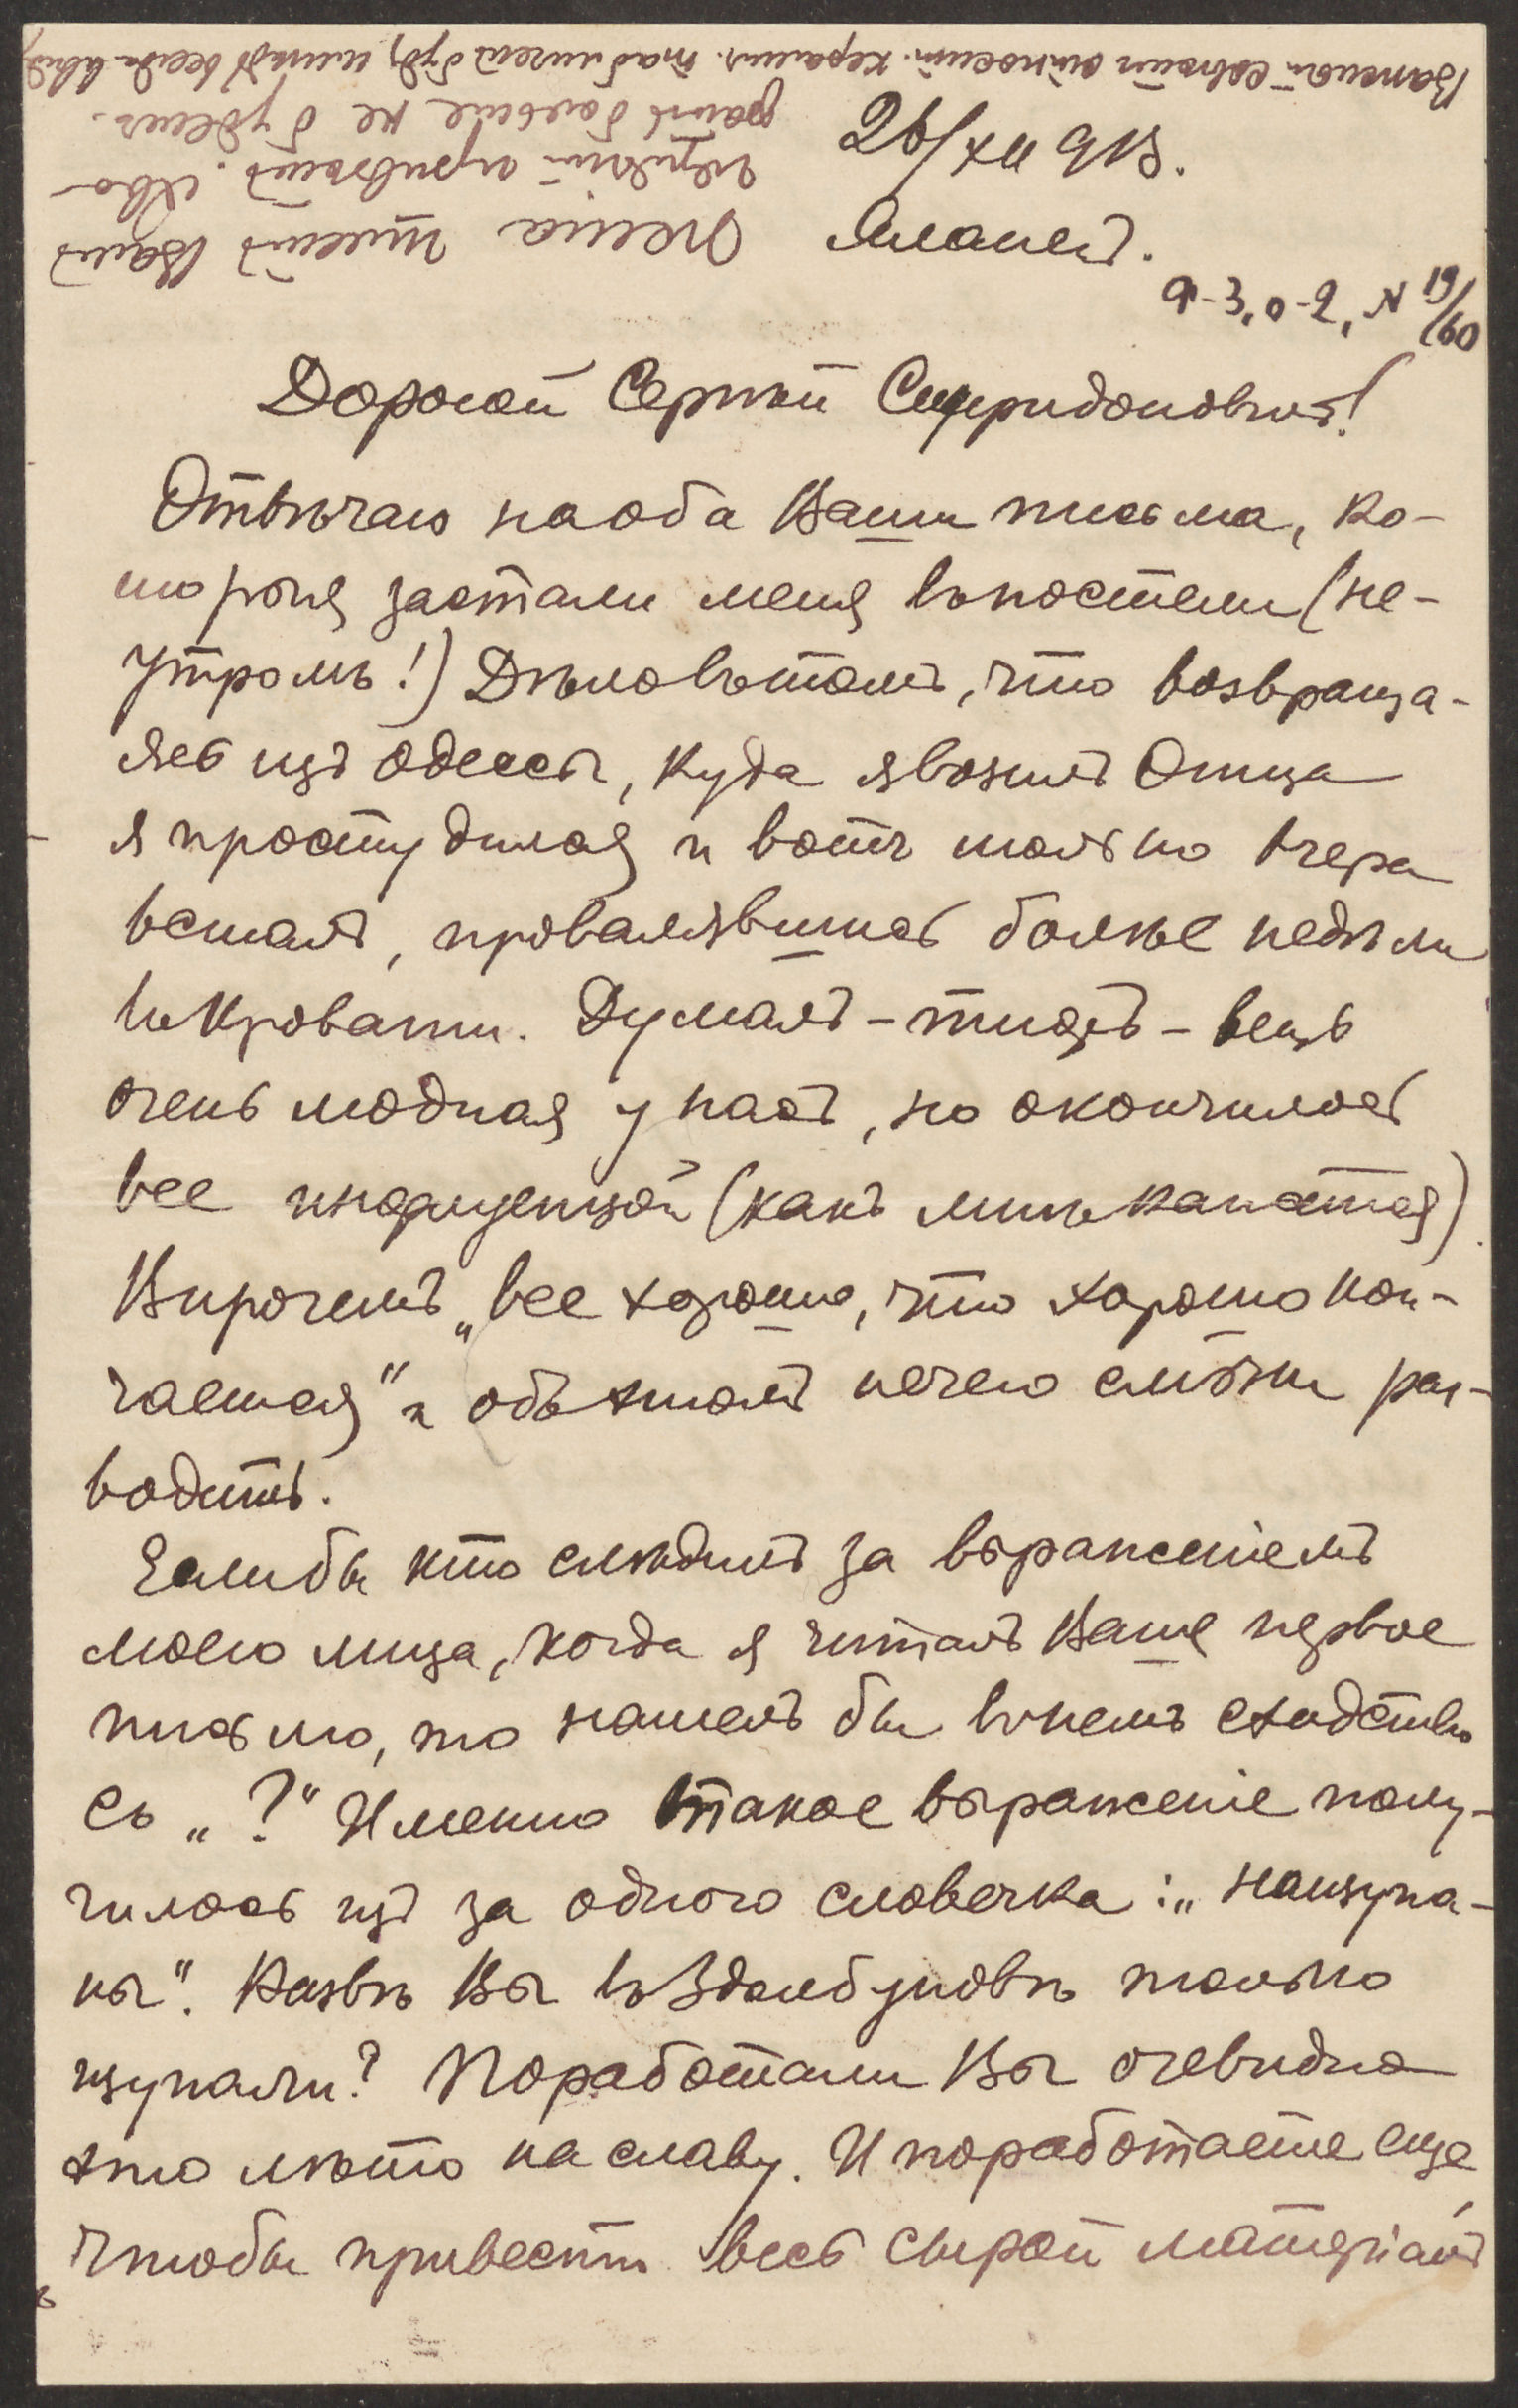 Вашей
26/XII 913.
Олеша шлетъ Вамъ
привѣтъ.
больше не будемъ.
Яланец.
Ф-3, о-2, N 19/60
Дорогой Сергѣй Спиридоновичъ!
Отвѣчаю на оба Ваши письма, ко-
торыя застали меня въ постели (не-
утромъ!) Дѣло въ томъ, что возвраща-
ясь изъ Одессы, куда я возилъ Отца
я простудился и вотъ только вчера
всталъ, провалявшись болѣе недѣли
въ кровати. Думалъ – тифъ – вещь
очень модная у насъ, но окончилось
все инфлуенцой (какъ мнѣ кажется).
Впрочемъ „все хорошо, что хорошо кон-
чается" и объ этомъ нечего слишкомъ раз-
водить.
Если бы кто слѣдилъ за выраженіемъ
моего лица, когда я читалъ Ваше первое
письмо, то нашелъ бы въ немъ сходство
съ „?" Именно такое выраженіе полу-
чилось изъ за одного словечка: „нащупа-
ны". Развѣ Вы въ Здолбуновѣ только
щупали? Поработали Вы очевидно
это лѣто на славу. И поработаете еще
чтобы привести весь сырой матеріалъ